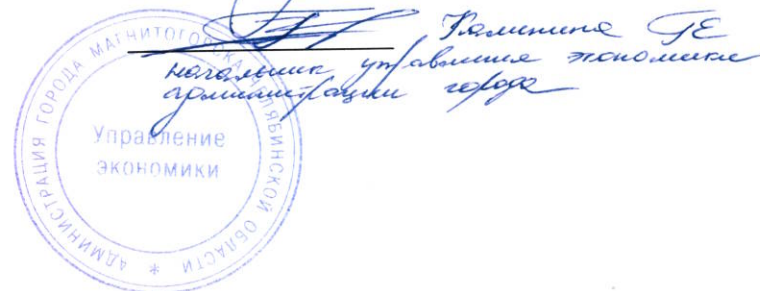 Калинина ГЕ
начальник управления экономики
администрации города
АДМИНИСТРАЦИЯ ГОРОДА МАГНИТОГОРСКА ЧЕЛЯБИНСКОЙ ОБЛАСТИ *
Управление
экономики